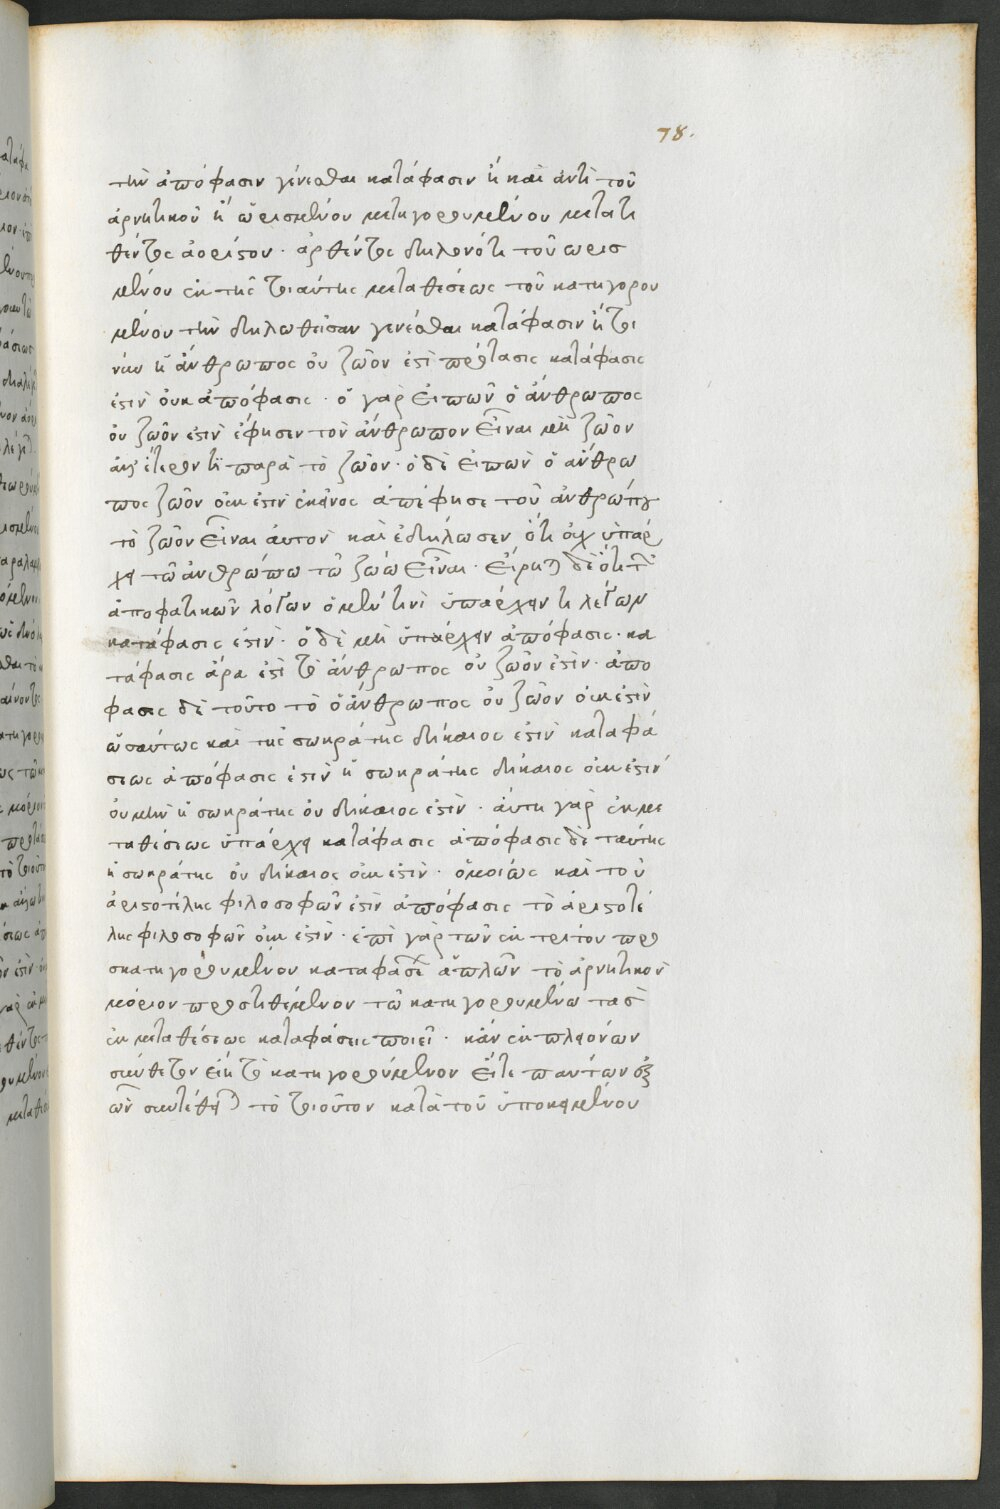 78.
τὴν ἀπόφασιν γένεσθαι κατάφασιν ἢ καὶ ἀντὶ τοῦ
ἀρνητικοῦ ἢ ὡρισμένου κατηγορουμένου μετατι
θέντος ἀορίστου · ἀρθέντος δηλονότι τοῦ ωρισ
μένου ἐκ τῆς τοιαύτης μεταθέσεως τοῦ κατηγορου
μένου τὴν δηλωθεῖσαν γενέσθαι κατάφασιν ἢ τοι
νυν ὁ ἄνθρωπος οὐ ζῶον ἐστὶ πρότασις κατάφασις
ἐστὶν οὐκ ἀπόφασις · ὁ γὰρ εἰπὼν ὁ ἄνθρωπος
οὐ ζῶον ἐστὶν ἔφησεν τὸν ἄνθρωπον εἶναι μὴ ζῶον
ἀλλ' ἕτερόν τι παρὰ τὸ ζῶον · ὁ δὲ εἰπὼν ὁ ἄνθρω
πος ζῶον οὐκ ἐστὶν ἐκεῖνος ἀπέφησε τοῦ ἀνθρώπου
τὸ ζῶον εἶναι αὐτὸν καὶ ἐδήλωσεν ὅτι οὐχ ὑπάρ
χει τῶ ἀνθρώπω τῶ ζώω εἶναι · εἴρηται δὲ ὅτι τῶν
ἀποφατικῶν λόγων ὁ μέν τινὶ ὑπάρχειν τι λέγων
κατάφασις ἐστὶν · ὁ δὲ μὴ ὑπάρχειν ἀπόφασις · κα
τάφασις ἄρα ἐστὶ τὸ ἄνθρωπος οὐ ζῶον ἐστὶν · ἀπο
φασις δὲ τοῦτο τὸ ὁ ἄνθρωπος οὐ ζῶον οὐκ ἐστὶν
ὡσαύτως καὶ τῆς σωκράτης δίκαιος ἐστὶν καταφά
σεως ἀπόφασις ἐστὶν ἡ σωκράτης δίκαιος οὐκ ἐστὶν
οὐ μὴν ἡ σωκράτης οὐ δίκαιος ἐστὶν · αὕτη γὰρ ἐκ με
ταθέσεως ὑπάρχει κατάφασις ἀπόφασις δὲ ταύτης
ἡ σωκράτης οὐ δίκαιος οὐκ ἐστὶν · ὁμοίως καὶ τοῦ
ἀριστοτέλης φιλοσοφῶν ἐστὶν ἀπόφασις τὸ ἀριστοτέ
λης φιλοσοφῶν οὐκ ἐστὶν · ἐπὶ γὰρ τῶν ἐκ τρίτου προ
σκατηγορουμένου καταφάσεων ἁπλῶν τὸ ἀρνητικὸν
μόριον προστιθέμενον τῶ κατηγορουμένω τὰς
ἐκ μεταθέσεως καταφάσεις ποιεῖ · κἂν ἐκ πλειόνων
σύνθετον εἴη τὸ κατηγορούμενον εἴτε πάντων ἐξ
ὧν συνετέθη τὸ τοιοῦτον κατὰ τοῦ ὑποκειμένου